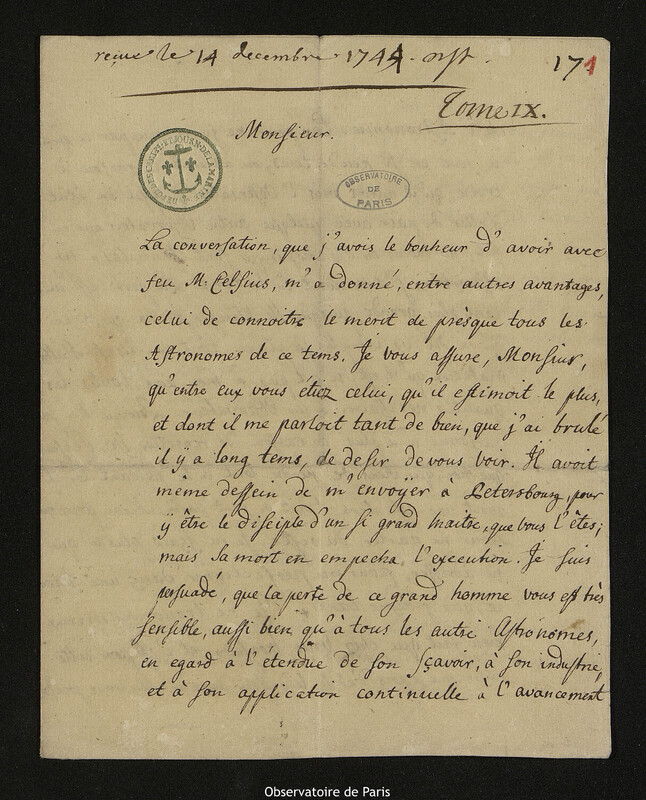 reçue le 14 decembre 1744. nst.
171
Tome IX.
Monsieur.
OBSERVATOIRE
DE
PARIS
La conversation, que j'avois le bonheur d'avoir avec
feu M. Celsius, m'a donné, entre autres avantages,
celui de connoitre le merit de prèsque tous les
Astronomes de ce tems. Je vous assure, Monsiur,
qu'entre eux vous étiez celui, qu'il estimoit le plus,
et dont il me parloit tant de bien, que j'ai brulé
il ÿ a long tems, de desir de vous voir. Il avoit
même dessein de m'envoyer à Petersbourg, pour
ÿ être le disciple d'un si grand maitre, que vous l'êtes;
mais sa mort en empecha l'execution. Je suis
persuadé, que la perte de ce grand homme vous est très
sensible, aussi bien qu'à tous les autre Astrónomes,
en egard à l'étendüe de son sçavoir, à son industrie,
et à son application continuelle à l'avancement
Observatoire de Paris